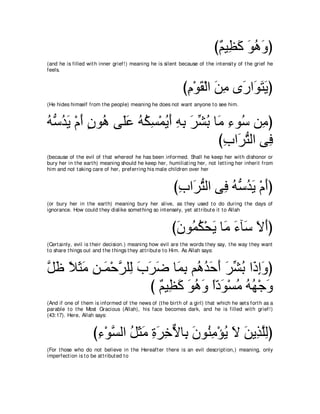 (وَهُوَ كَظِيمٌ)
(and he is filled with inner grief!) meaning he is silent because of the intensity of the grief he
feels.
(يَتَوَارَى مِنَ الْقَوْمِ)
(He hides himself from the people) meaning he does not want anyone to see him.
(مِن سُوءِ مَا بُشِّرَ بِهِ أَيُمْسِكُهُ عَلَى هُونٍ أَمْ يَدُسُّهُ
فِى التُّرَابِ)
(because of the evil of that whereof he has been informed. Shall he keep her with dishonor or
bury her in the earth) meaning should he keep her, humiliating her, not letting her inherit from
him and not taking care of her, preferring his male children over her
(أَمْ يَدُسُّهُ فِى التُّرَابِ)
(or bury her in the earth) meaning bury her alive, as they used to do during the days of
ignorance. How could they dislike something so intensely, yet attribute it to Allah
(أَلاَ سَآءَ مَا يَحْكُمُونَ)
(Certainly, evil is their decision.) meaning how evil are the words they say, the way they want
to share things out and the things they attribute to Him. As Allah says:
(وَإِذَا بُشِّرَ أَحَدُهُم بِمَا ضَرَبَ لِلرَّحْمَـنِ مَثَلاً ظَلَّ
وَجْهُهُ مُسْوَدّاً وَهُوَ كَظِيمٌ )
(And if one of them is informed of the news of (the birth of a girl) that which he sets forth as a
parable to the Most Gracious (Allah), his face becomes dark, and he is filled with grief!)
(43:17). Here, Allah says:
(لِلَّذِينَ لاَ يُؤْمِنُونَ بِالاٌّخِرَةِ مَثَلُ السَّوْءِ)
(For those who do not believe in the Hereafter there is an evil description,) meaning, only
imperfection is to be attributed to